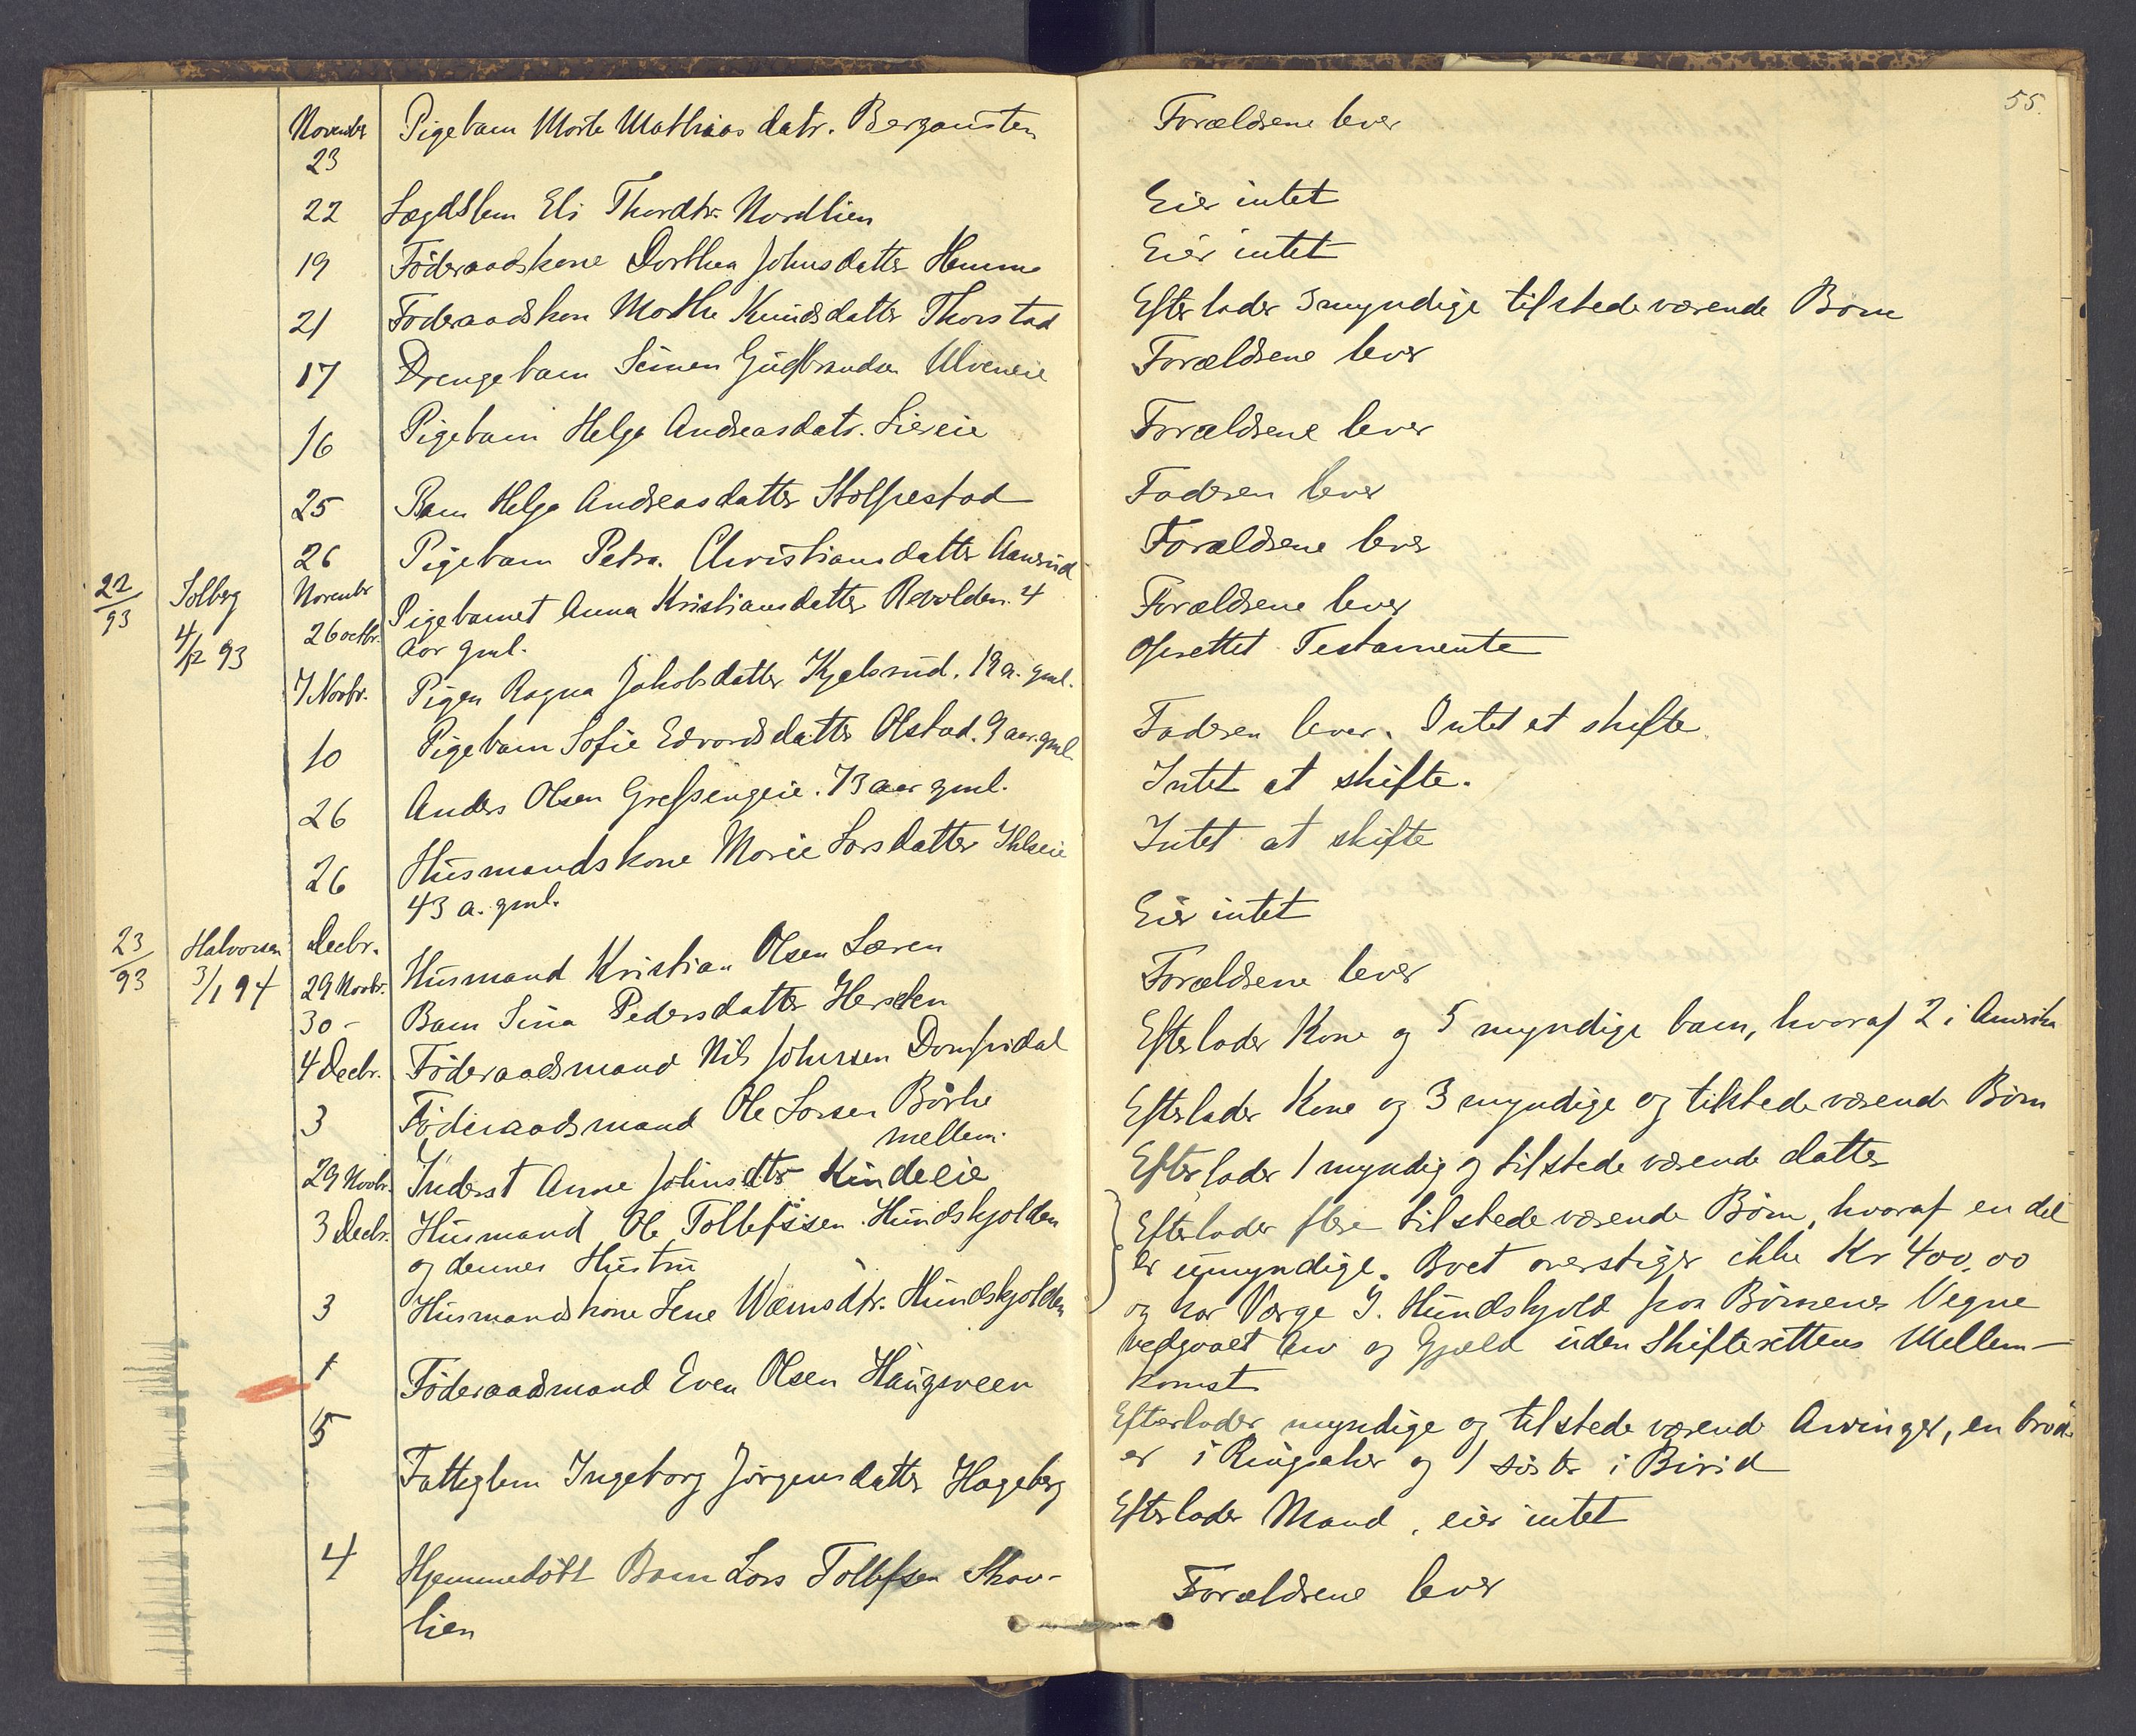 55.
November Pigebarn Marte Mathias datr. Bergausten Forældrene lever
23
22 Lægdslem Eli Thordtr Nordlien Eier intet
19 Föderaadskone Dorthea Johnsdatter Hemma Eier intet
21 Föderaadskon Mathe Knudsdatter Thorstad Efterlader 3 myndige tilstedeværende Börn
17 Drengebarn Simen Gudbrandsen Ulveneie Forældrene lever
16 Pigebarn Helga Andreasdatr. Liereie Forældrene lever
25 Barn Helga Andreasdatter Stolpestad Faderen lever
26 Pigebarn Petra Christiansdatter Aanerud Forældrene lever
22/93 Solberg Novembr Pigebarnet Anna Kristiansdatter Revolden. 4 Forældrene lever
4/12 93 26 octbr. aar gml.
7 Novbr. Pigen Ragna Jakobsdatter Kjelsrud. 19 a. gml. Oprettet Testamente
10 Pigebarn Sofie Edvardsdatter Olstad. 9 aar. gml. Faderen lever. Intet at skifte.
26 Anders Olsen Grefsengeie. 73 aar gml. Intet at skifte.
26 Husmandskone Marie Larsdatter Ihleeie Intet at skifte
43 a. gml.
23/93 Halvorsen Decbr.
3/1 94 29 Novbr. Husmand Kristian Olsen Læren Eier intet
30 - Barn Sina Pedersdatter Herselen Forældrene lever
4 Decbr. Föderaadsmand Nils Johnsen Dompidal Efterlader Kone og 5 myndige barn, hvoraf 2 i Amerika
3 Föderaadsmand Ole Larsen Börke Efterlader Kone og 3 myndige og tilstedeværende Börn
mellem.
29 Novbr. Inderst Anne Johnsdtr Kindleie Efterlader 1 myndig og tilstedeværende datter
3 Decbr. Husmand Ole Tollefssen Hundskjolden Efterlader flere tilstedeværende Börn, hvoraf en del
og dennes Hustru er umyndige. Boet overstiger ikke Kr 400,00
3 Husmandskone Lene Wærnsdtr. Hundskjolden og har Værge J. Hundskjold paa Börnenes Vegne
vedgaaet Arv og Gjæld uden Skifterettens Mellem-
komst
1 Föderaadsmand Even Olsen Haugsveen
Efterlader myndige og tilstedeværende Arvinger, en brod-
er i Ringsaker og 1 söster i Birid
5 Fattiglem Ingeborg Jörgensdatter Hageberg Efterlader Mand, eier intet
4 Hjemmedöbt Barn Lars Tollefsen Skav- Forældrene lever
lien